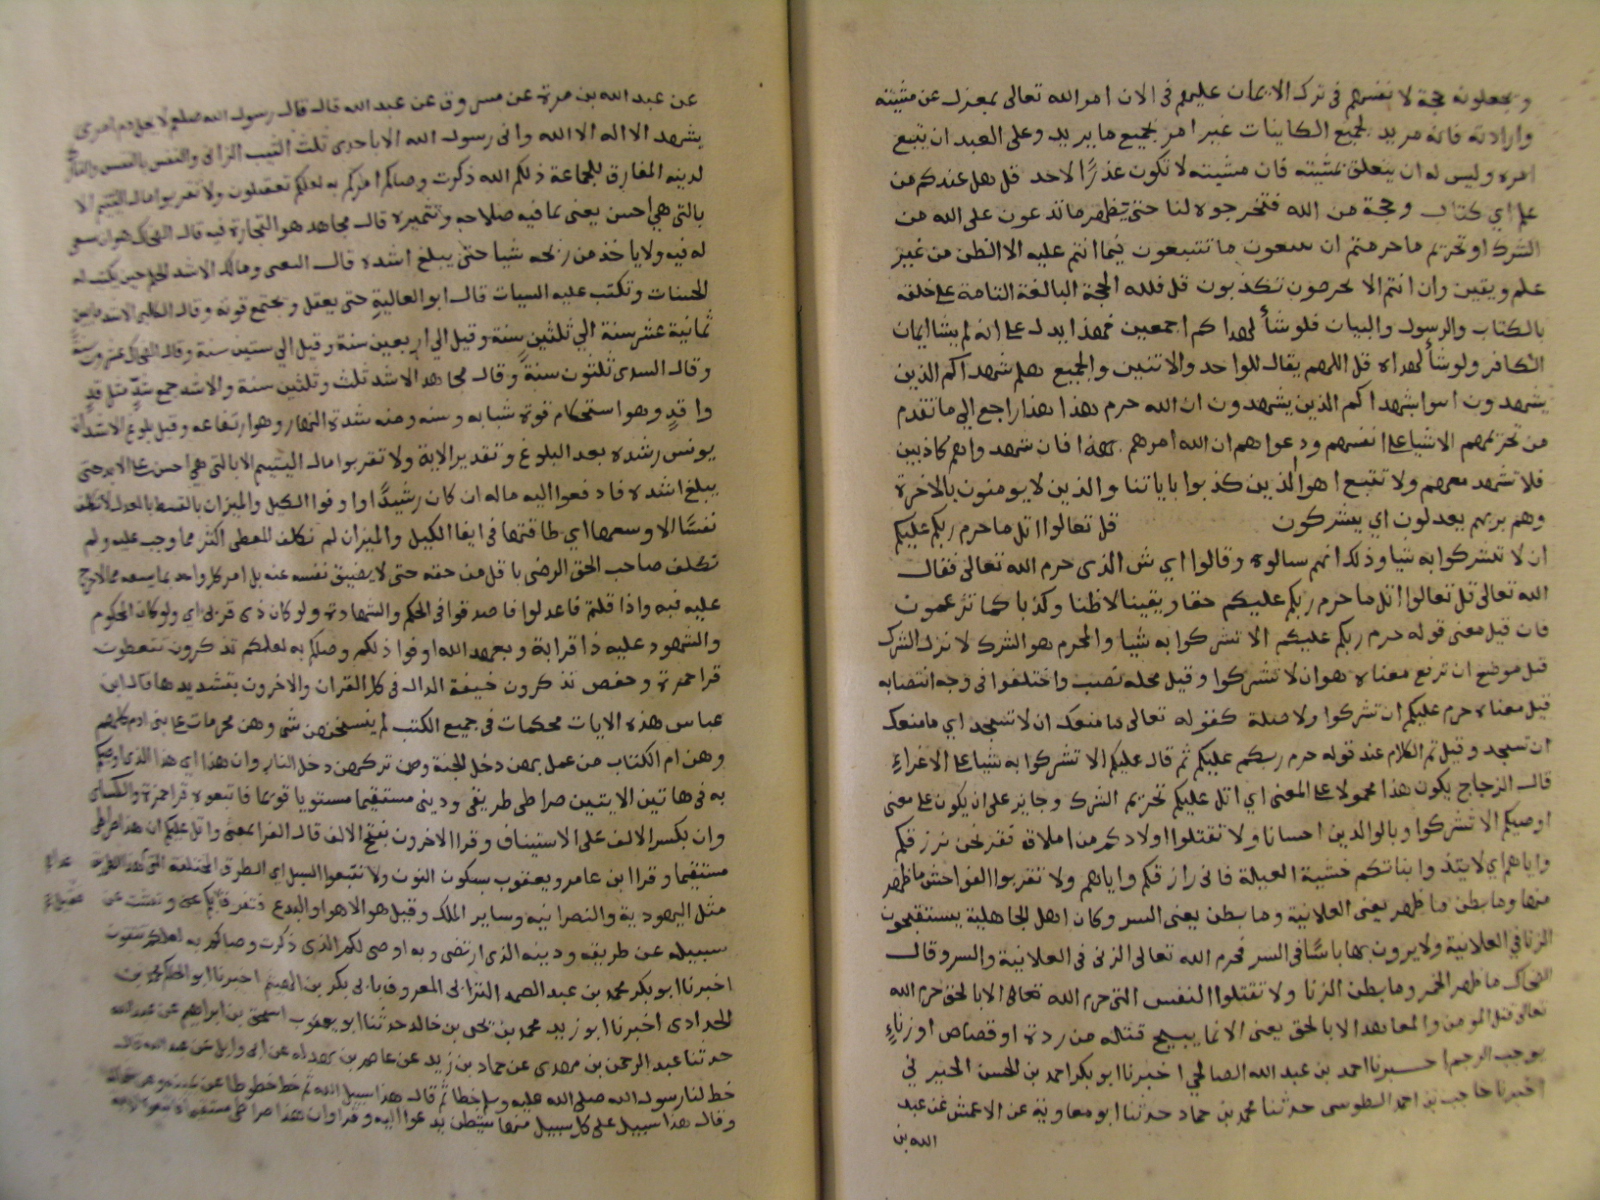 ويجعلونه حجة لانفسهم في ترك الايمان عليهم في الان امر الله تعالى بمعزل عن مشيته
وارادته فانه مريد لجميع الكاينات غير امر بجميع ما يريد وعلى العبد ان يتبع
امره وليس له ان يتعلق بمشيته فان مشيته لا تكون عذرًا لاحد قل هل عندكم من
علم اي كتاب وحجة من الله فتخرجوه لنا حتى يظهر ما تدعون على الله من
الشرك او تحريم ما حرمتم ان تتبعون ما تتبعون فيما انتم عليه الا الظن من غير
علم ويقين وان انتم الا تخرصون تكذبون قل فلله الحجة البالغة التامة على خلقه
بالكتاب والرسول والبيان فلو شأ لهداكم اجمعين فهذا يدل على انه لم يشا ايمان
الكافر ولو شأ لهداه قل اللهم يقال للواحد والاثنين والجميع هلم شهداكم الذين
يشهدون اىتوا بشهداكم الذين يشهدون ان الله حرم هذا هذا راجع الى ما تقدم
من تحريمهم الاشيا على انفسهم ودعواهم ان الله امرهم بهذا فان شهدوا وهم كاذبين
فلا تشهد معهم ولا تتبع اهوا الذين كذبوا باياتنا والذين لا يومنون بالاخرة
وهم بربهم يعدلون اي يشركون قل تعالوا اتل ما حرم ربكم عليكم
ان لا تشركوا به شيا وذلك انهم سالوه وقالوا اي شي الذي حرم الله تعالى فقال
الله تعالى قل تعالوا اتل ما حرم ربكم عليكم حقا ويقينا لا ظنا وكذبا كما تزعمون
فان قيل معنى قوله حرم ربكم عليكم الا تشركوا به شيا والمحرم هو الشرك لا ترك الشرك
قيل موضع ان ترفع معناه هو ان لا تشركوا وقيل محله نصب واختلفوا في وجه انتصابه
قيل معناه حرم عليكم ان تشركوا ولا صلة كقوله تعالى ما منعك ان لا تسجد اي ما منعك
ان تسجد وقيل تم الكلام عند قوله حرم ربكم عليكم ثم قال عليكم الا تشركوا به شيا على الاغراء
قال الزجاج يكون هذا محمولا على المعنى اي اتل عليكم تحريم الشرك وجايز على ان يكون على معنى
اوصيكم الا تشركوا وبالوالدين احسانا ولا تقتلوا اولادكم من املاق فقر نحن نرزقكم
واياهم اي لا تيدوا بناتكم خشية العيلة فاني رازقكم واياهم ولا تقربوا الفواحش ما ظهر
منها وما بطن ما ظهر يعنى العلانية وما بطن يعنى السر وكان اهل الجاهلية يستقبحون
الزنا في العلانية ولا يرون بها باسًا في السر فحرم الله تعالى الزنى في العلانية والسر وقال
الضحاك ما ظهر الخمر وما بطن الزنا ولا تقتلوا النفس التى حرم الله تعالى الا بالحق حرم الله
تعالى قتل المومن والمعاهد الا بالحق يعنى الا بما يبيح قتله من ردة او قصاص او زناء
يوجب الرجم اخبرنا احمد بن عبد الله الصالحي اخبرنا ابو بكر احمد بن الحسن الحيرني
اخبرنا حاجب بن احمد الطوسى حدثنا محمد بن حماد حدثنا ابو معاوية عن الاعمش عن عبد
الله بن
عن عبد الله بن مرة عن مسروق عن عبد الله قال قال رسول الله صلعم لا يحل دم امرى
يشهد الا اله الا الله وانى رسول الله الا باحدى ثلث الثيب الزانى والنفس بالنفس والتارك
لدينه المفارق للجماعة ذلكم الله ذكرت وصاكم امركم به لعلكم تعقلون ولا تقربوا مال اليتيم الا
بالتى هي احسن يعنى بما فيه صلاحه وتثميره قال مجاهد هو التجارة فيه قال الضحاك هو ان يسعى
له فيه ولا ياخذ من ربحه شيا حتى يبلغ اشده قال الشعبى ومالك الاشد الحلم حين يكتب له
الحسنات وتكتب عليه السيات قال ابو العالية حتى يعقل ويجتمع قوته وقال الكلبى الاشد ما بين
ثمانية عشر سنة الي ثلثين سنة وقيل الي اربعين سنة وقيل الي ستين سنة وقال الضحاك عشرون سنة
وقال السدى ثلثون سنة وقال مجاهد الاشد ثلث وثلثين سنة والاشد جمع شد مثل قد
واقد وهو استحكام قوة شبابه وسنه ومنه شدة النهار وهو ارتفاعه وقيل بلوغ الاشد ان
يونس رشده بعد البلوغ وتقدير الاية ولا تقربوا مال اليتيم الا بالتى هي احسن على الابد حتى
يبلغ اشده فادفعوا اليه ماله ان كان رشيدًا واوفوا الكيل والميزان بالقسط بالعدل لا نكلف
نفسًا الا وسعها اي طاقتها في ايفا الكيل والميزان لم نكلف المعطى اكثر مما وجب عليه ولم
نكلف صاحب الحق الرضى باقل من حقه حتى لا يضيق نفسه عنه بل امر كل واحد بما يسعه مما لا حرج
عليه فيه واذا قلتم فاعدلوا فاصدقوا في الحكم والشهادة ولو كان ذى قربى اي ولو كان المحكوم
والشهود عليه ذا قرابة وبعهد الله اوفوا ذلكم وصاكم به لعلكم تذكرون تتعظون
قرا حمزة وحفص تذكرون خفيفة الدال في كل القران والاخرون بتشديدها قال ابن
عباس هذه الايات محكمات في جميع الكتب لم ينسخهن شى وهن محرمات على بنى ادم كلهم
وهن ام الكتاب من عمل بهن دخل الجنة ومن تركهن دخل النار وان هذا اي هذا الذى اوصيكم
به في هاتين الايتين صراطى طريقى ودينى مستقيما مستويا قويما فاتبعوه قرا حمزة والكساى
وان بكسر الالف على الاستيناف وقرا الاخرون بفتح الالف قال الفرا بمعنى واتل عليكم ان هذا صراطى
مستقيما وقرا ابن عامر ويعقوب بسكون النون ولا تتبعوا السبل اي الطرق المختلفة التى هذا الطريق
مثل اليهودية والنصرانية وساير الملل وقيل هو الاهوا والبدع فتفرق بكم عن
سبيله عن طريقه ودينه الذى ارتضى وبه اوصى لكم الذى ذكرت وصاكم به لعلكم تتقون
اخبرنا ابو بكر محمد بن عبد الصمد الترابى المعروف بابى بكر بن الهيثم اخبرنا ابو الفضل محمد بن
الحدادى اخبرنا ابو زيد محمد بن يحيى بن خالد حدثنا ابو يعقوب اسحق بن ابراهيم عن عبد الله
حدثنا عبد الرحمن بن مهدى عن حماد بن زيد عن عاصم بن بهدله عن ابى وايل عن عبد الله قال
خط لنا رسول الله صلى الله عليه وسلم خطا ثم قال هذا سبيل الله ثم خط خطوطا عن يمينه وعن شماله
وقال هذا سبيل على كل سبيل منها شيطن يدعوا اليه وقرا وان هذا صراطى مستقيما فاتبعوه الاية